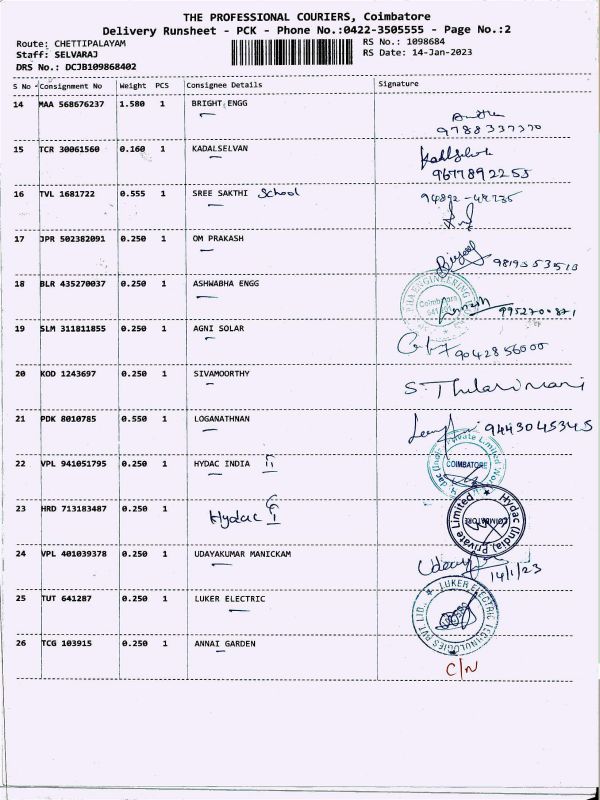 THE PROFESSIONAL COURIERS, Coimbatore
Delivery Runsheet - PCK - Phone No.:0422-3505555 - Page No.:2
Route: CHETTIPALAYAM RS No.: 1098684
Staff: SELVARAJ RS Date: 14-Jan-2023
DRS No.: DCJB109868402
S No Consignment No Weight PCS Consignee Details Signature
14 MAA 568676237 1.580 1 BRIGHT ENGG
9788337370
15 TCR 30061560 0.160 1 KADALSELVAN
9677892255
16 TVL 1681722 0.555 1 SREE SAKTHI School
17 JPR 502382091 0.250 1 OM PRAKASH
18 BLR 435270037 0.250 1 ASHWABHA ENGG
19 SLM 311811855 0.250 1 AGNI SOLAR
9042856000
20 KOD 1243697 0.250 1 SIVAMOORTHY
21 PDK 8010785 0.550 1 LOGANATHNAN
9443045345
22 VPL 941051795 0.250 1 HYDAC INDIA
COIMBATORE
23 HRD 713183487 0.250 1 Hydac
Hydac (India) Private Limited
COIMBATORE
24 VPL 401039378 0.250 1 UDAYAKUMAR MANICKAM
14/1/23
25 TUT 641287 0.250 1 LUKER ELECTRIC
LUKER ELECTRIC TECHNOLOGIES PVT LTD.,
26 TCG 103915 0.250 1 ANNAI GARDEN
C/N